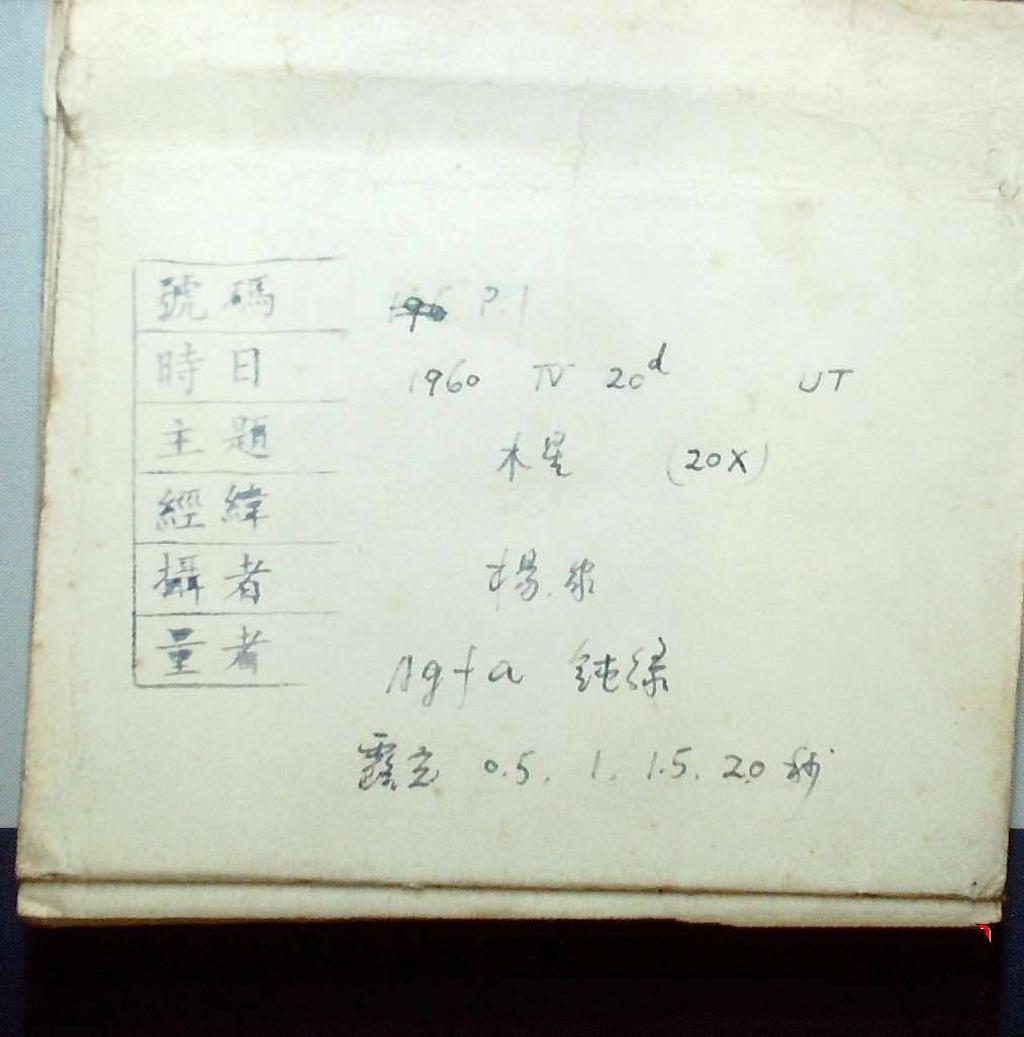 號碼 P.1
時日 1960 IV 20d UT
主題 木星 (20X)
經緯
攝者 楊
量者 Agfa 鈍綠
露光 0.5. 1. 1.5. 2.0 秒